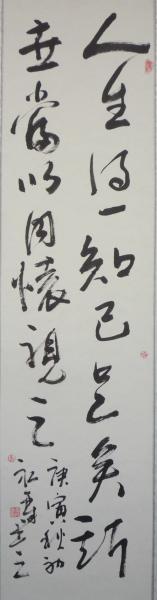 人生得一知己足矣斯
世當以同懷視之
庚寅秋初